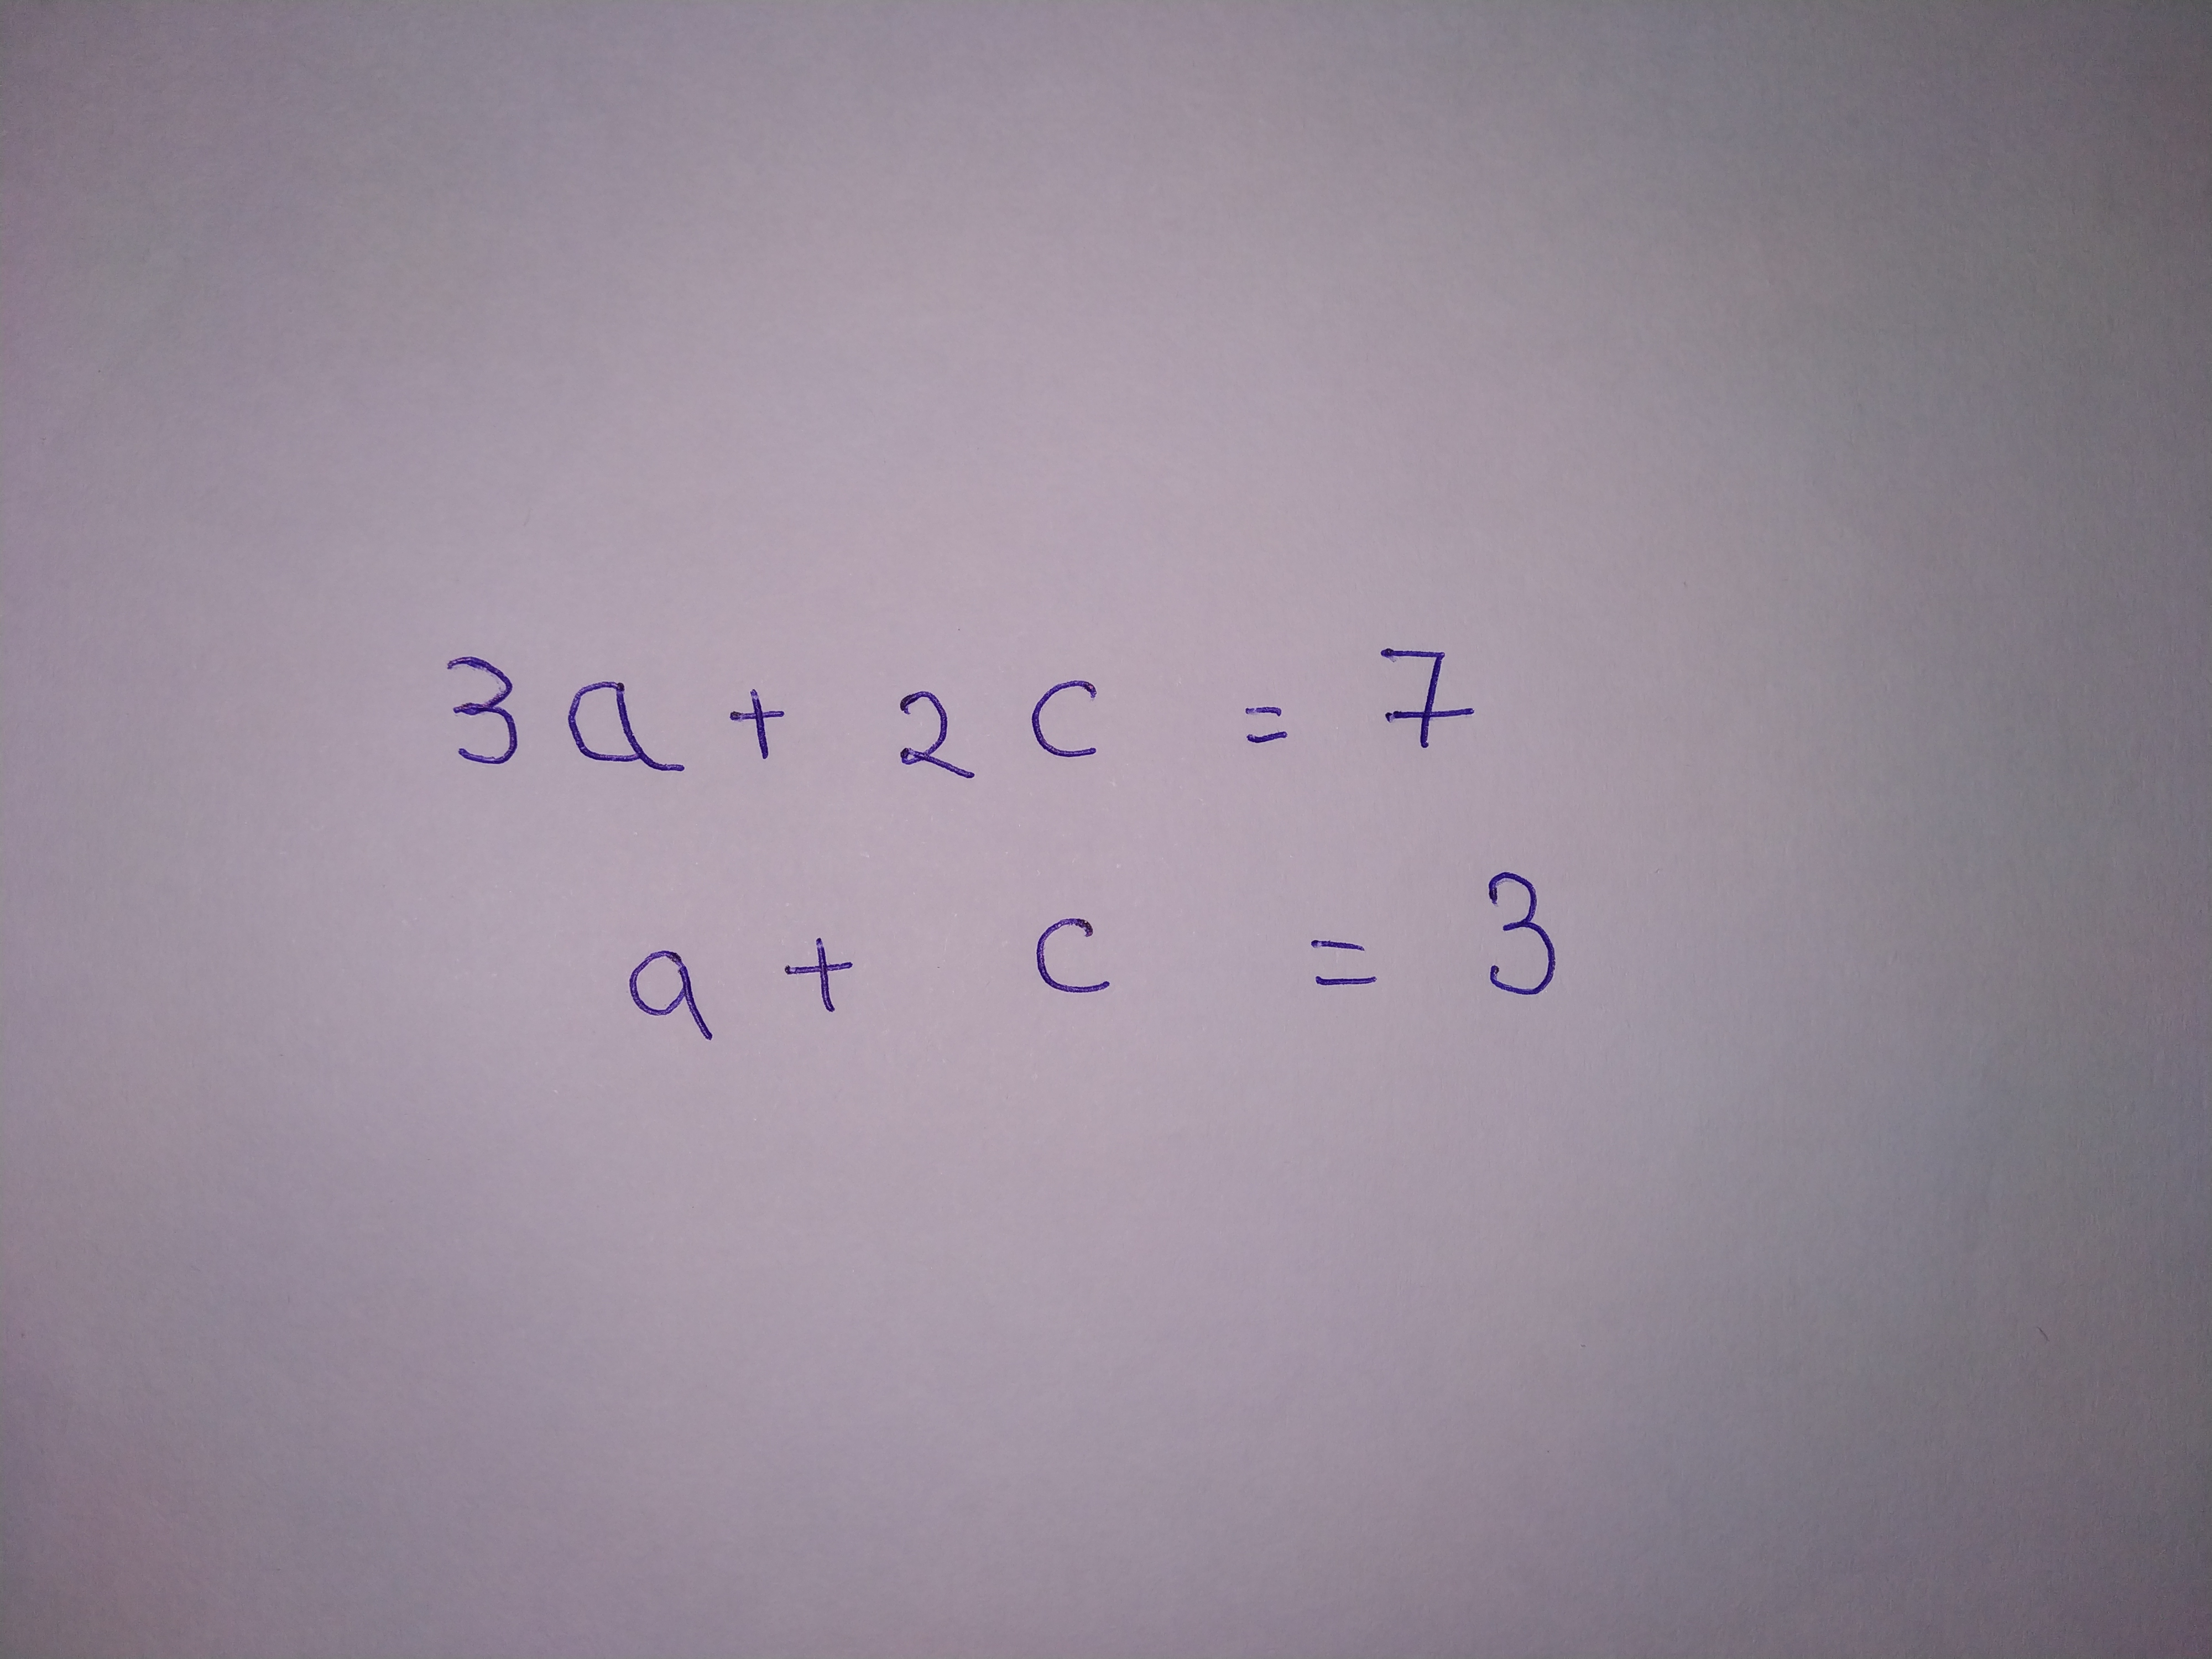 3a + 2c = 7
a + c = 3